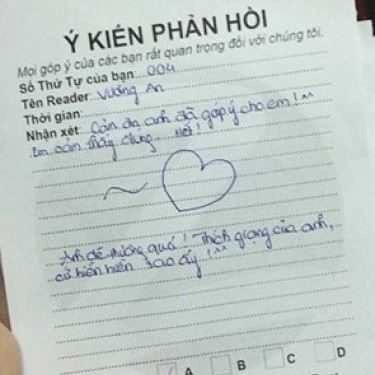 Ý KIẾN PHẢN HỒI
Mọi góp ý của các bạn rất quan trọng đối với chúng tôi.
Số Thứ Tự của bạn: 004
Tên Reader: Vương An
Thời gian:
Nhận xét: Cản ơn anh đã góp ý cho em! ^^
Em cảm thấy đúng... Hết!
Anh dễ thương quá! Thích giọng của anh,
cứ hiền hiền sao ấy! ^^
A B C D